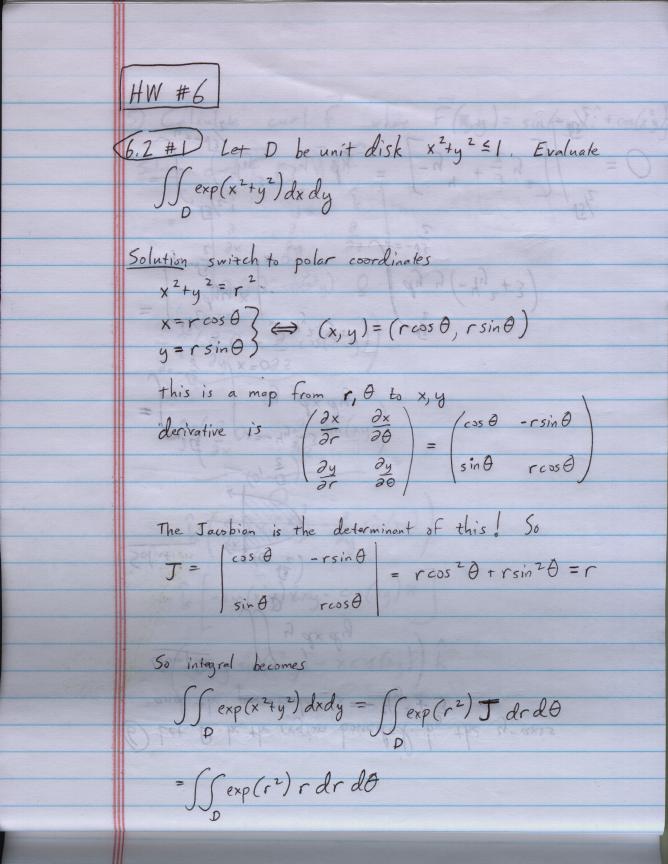 HW #6
6.2 #1 Let D be unit disk x²+y² ≤ 1. Evaluate
∬_D exp(x²+y²) dx dy
Solution switch to polar coordinates
x²+y² = r²
x = r cos θ
y = r sin θ } ⟺ (x, y) = (r cos θ, r sin θ)
this is a map from r, θ to x, y
derivative is ( ∂x/∂r ∂x/∂θ ; ∂y/∂r ∂y/∂θ ) = ( cos θ -r sin θ ; sin θ r cos θ )
The Jacobian is the determinant of this! So
J = | cos θ -r sin θ ; sin θ r cos θ | = r cos²θ + r sin²θ = r
So integral becomes
∬_D exp(x²+y²) dx dy = ∬_D exp(r²) J dr dθ
= ∬_D exp(r²) r dr dθ